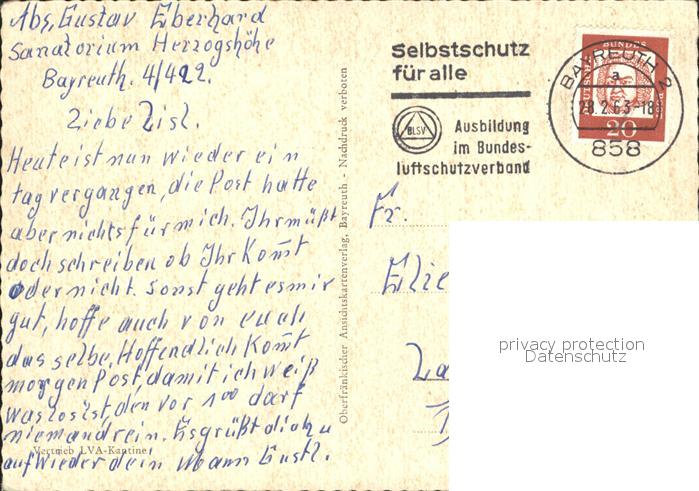 Abs, Gustav Eberhard
Sanatorium Herzogshöhe
Bayreuth. 4/422.
Liebe Lisl.
Heute ist nun wieder ein
tag vergangen, die Post hatte
aber nichts für mich. Ihr müßt
doch schreiben ob Ihr Kom̄t
oder nicht. Sonst geht es mir
gut, hoffe auch von euch
das selbe, Hoffendlich Kom̄t
morgen Post, damit ich weiß
was los ist, den vor 1⁰⁰ darf
niemand rein. Es grüßt dich u
auf wieder dein Mann Gustl.
Vertrieb LVA-Kantine
Oberfränkischer Ansichtskartenverlag, Bayreuth - Nachdruck verboten
Selbstschutz
für alle
BLSV
Ausbildung
im Bundes-
luftschutzverband
BAYREUTH 2
a
28.2.63-18
858
20
Fr.
privacy protection
Datenschutz